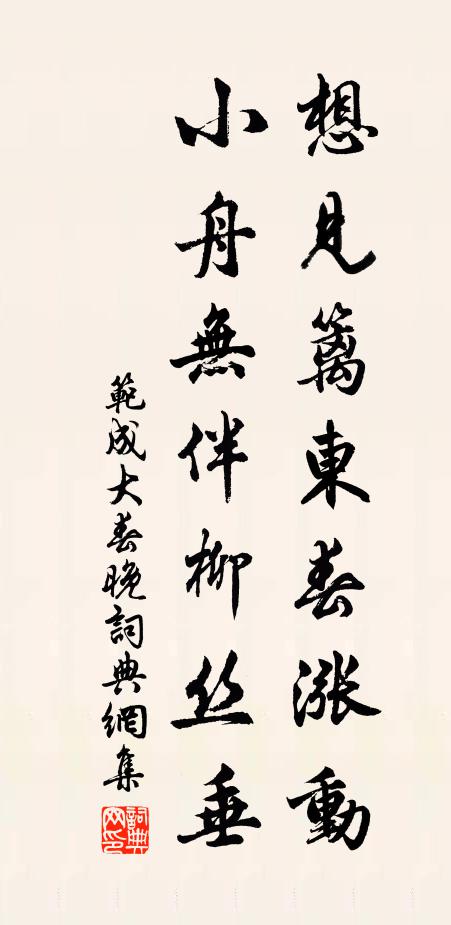 想見篱東春漲動
小舟無伴柳丝垂
範成大春晚詞典網集
詞典网印